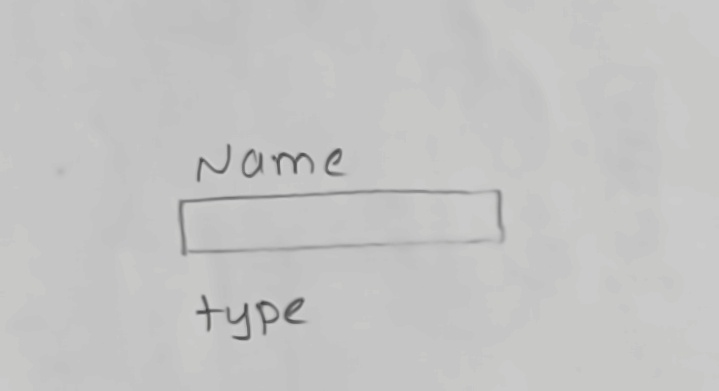 Name
type